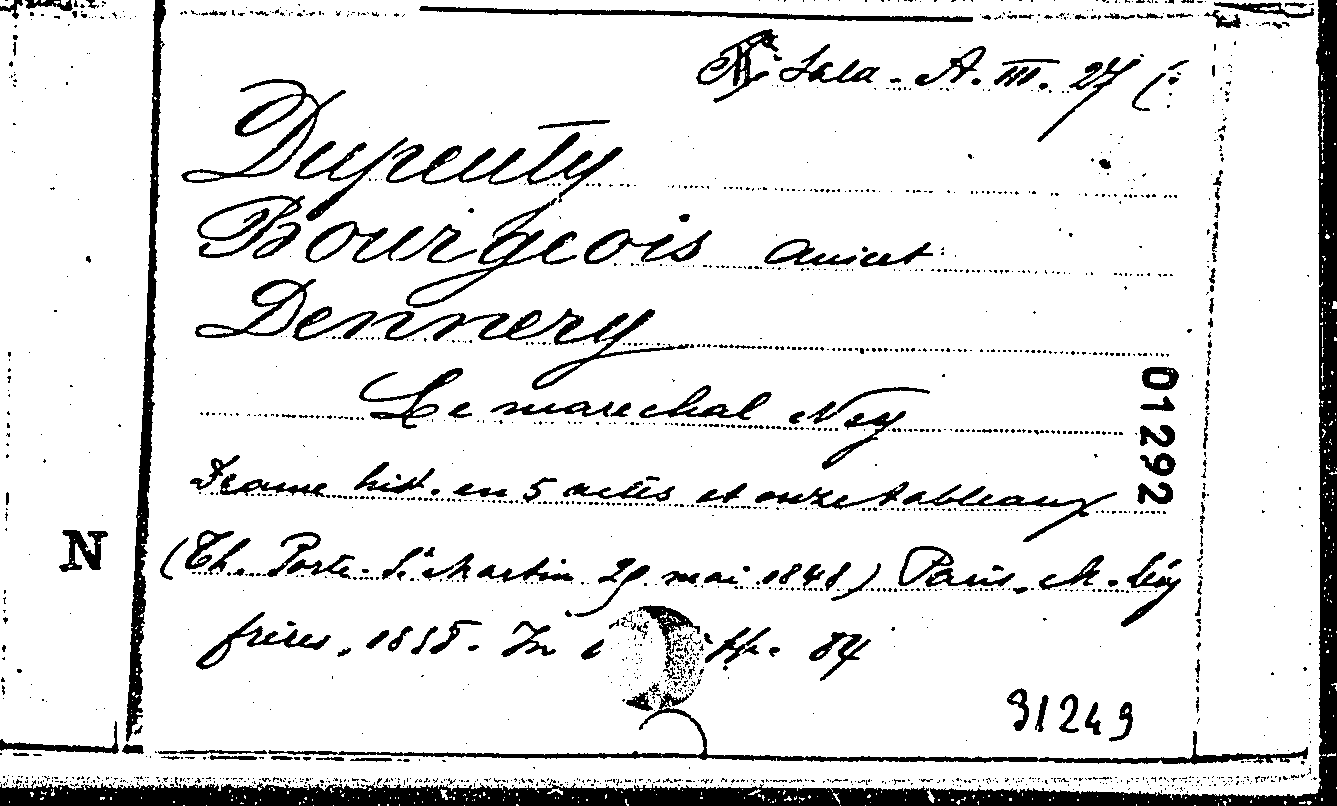 Sala. A. III. 27 (
Dupeuty
Bourgeois Anicet
Dennery
Le marechal Ney
Drame hist. en 5 actes et onze tableaux
01292
N
(Th. Porte-St Martin 29 mai 1848) Paris, M. Lévy
frères, 1855. In 84
91249